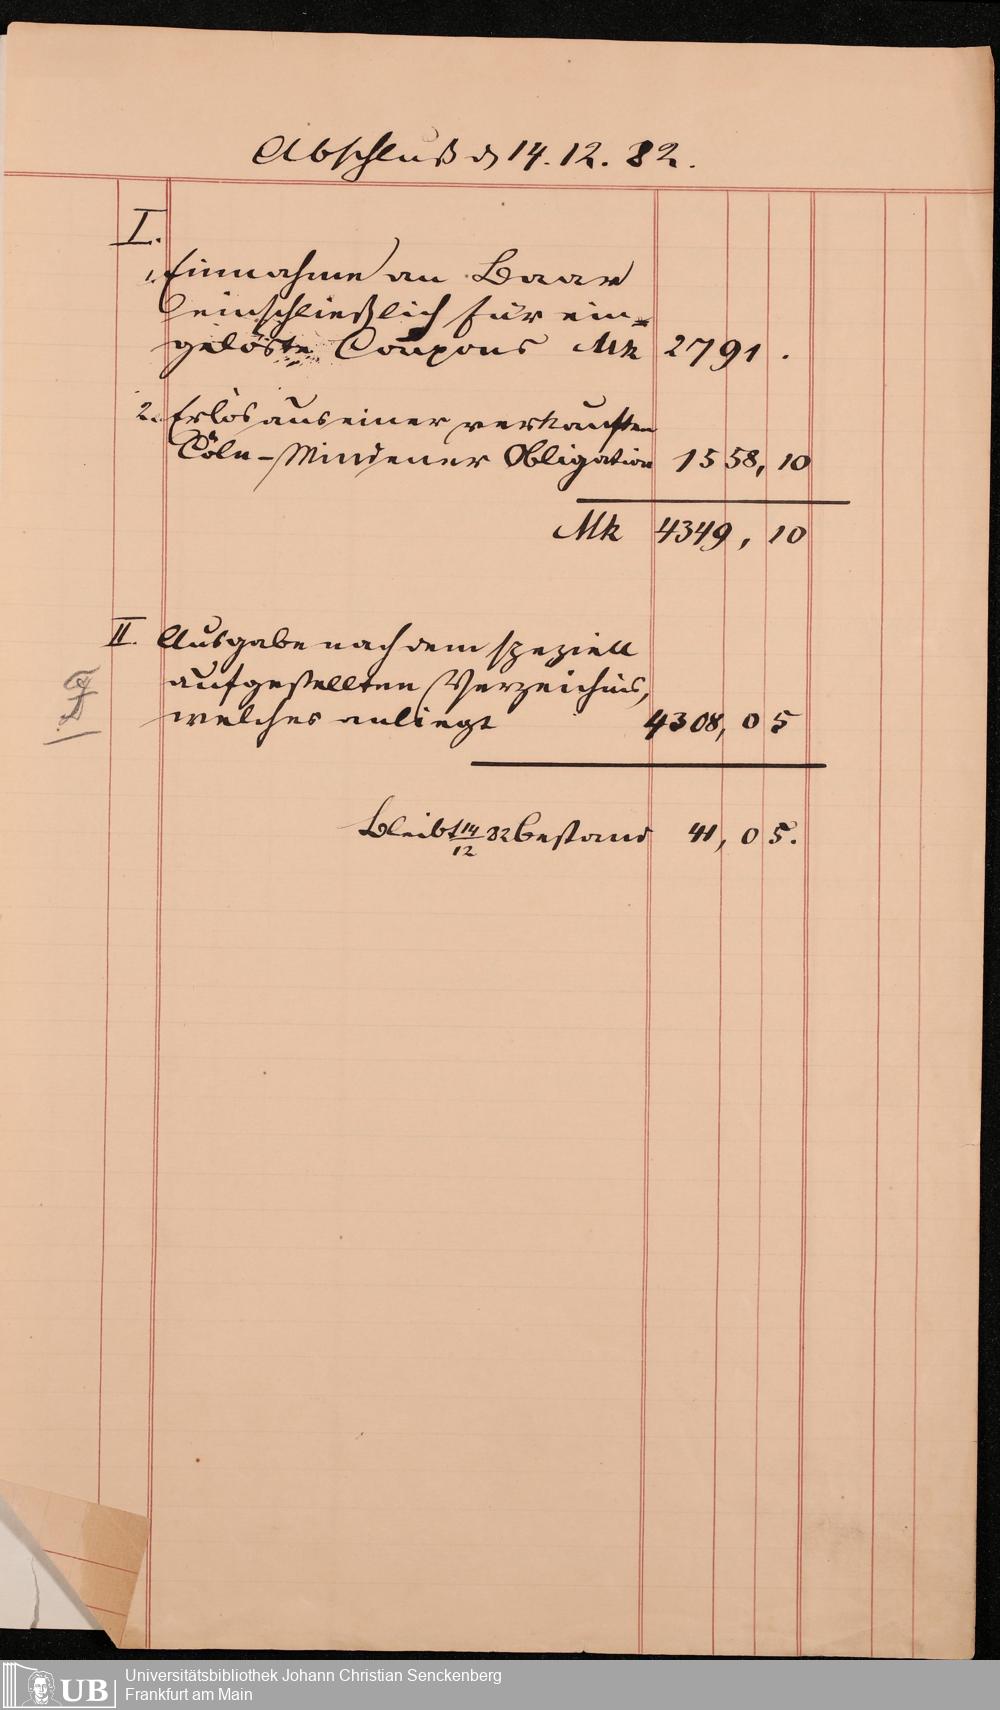 Abschluß d 14. 12. 82.
I.
1. Einnahme an Baar
einschließlich für ein=
gelöste Coupons Mk 2791 .
2. Erlös aus einer verkauften
Cöln-Mindener Obligation 1558,10
Mk 4349,10
II. Ausgabe nach dem speziell
aufgestellten Verzeichnis,
welches anliegt 4308,05
Bleibt 14/12 82 Bestand 41,05.
UB
Universitätsbibliothek Johann Christian Senckenberg
Frankfurt am Main